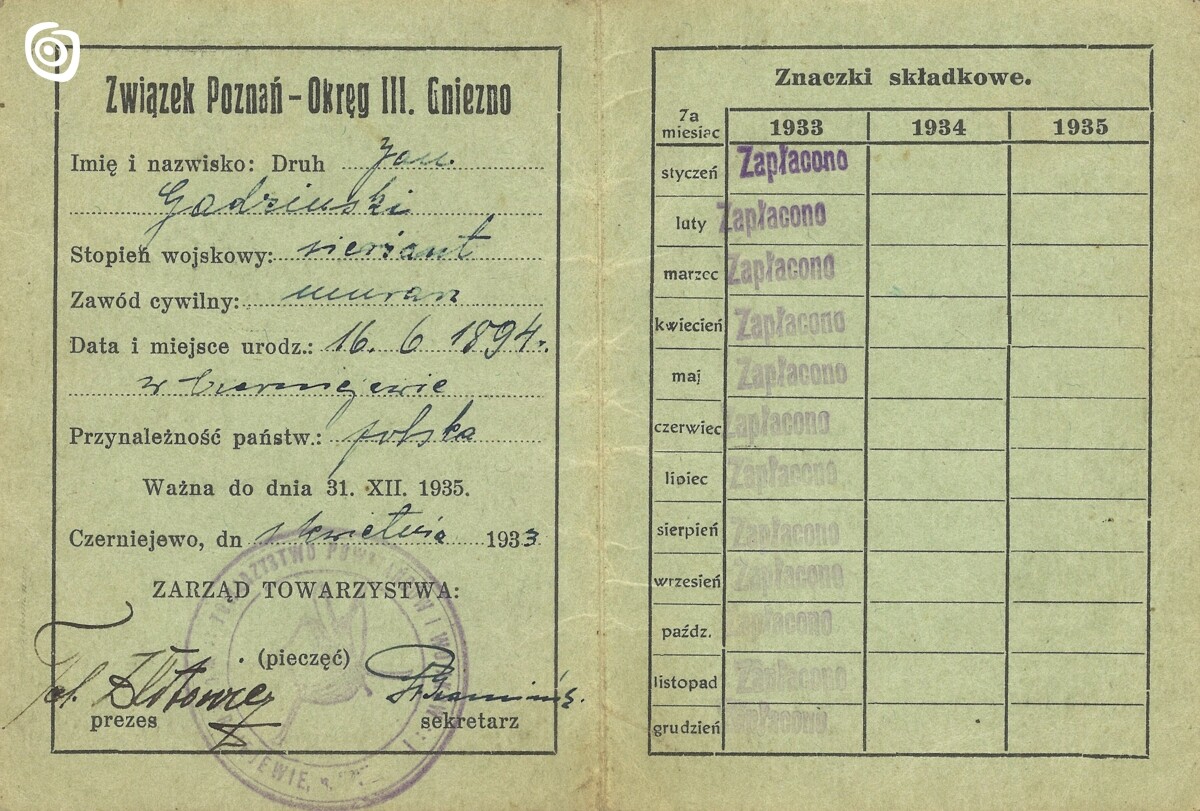 Związek Poznań - Okręg III. Gniezno
Imię i nazwisko: Druh Jan
Gadziński
Stopień wojskowy: sierżant
Zawód cywilny: murarz
Data i miejsce urodz.: 16. 6 1894.
w Czerniejewie
Przynależność państw.: polska
Ważna do dnia 31. XII. 1935.
Czerniejewo, dn kwietnia 1933
ZARZĄD TOWARZYSTWA:
(pieczęć)
prezes sekretarz
Znaczki składkowe.
Za miesiąc 1933 1934 1935
styczeń Zapłacono
luty Zapłacono
marzec Zapłacono
kwiecień Zapłacono
maj Zapłacono
czerwiec Zapłacono
lipiec Zapłacono
sierpień Zapłacono
wrzesień Zapłacono
paźdz. Zapłacono
listopad Zapłacono
grudzień Zapłacono